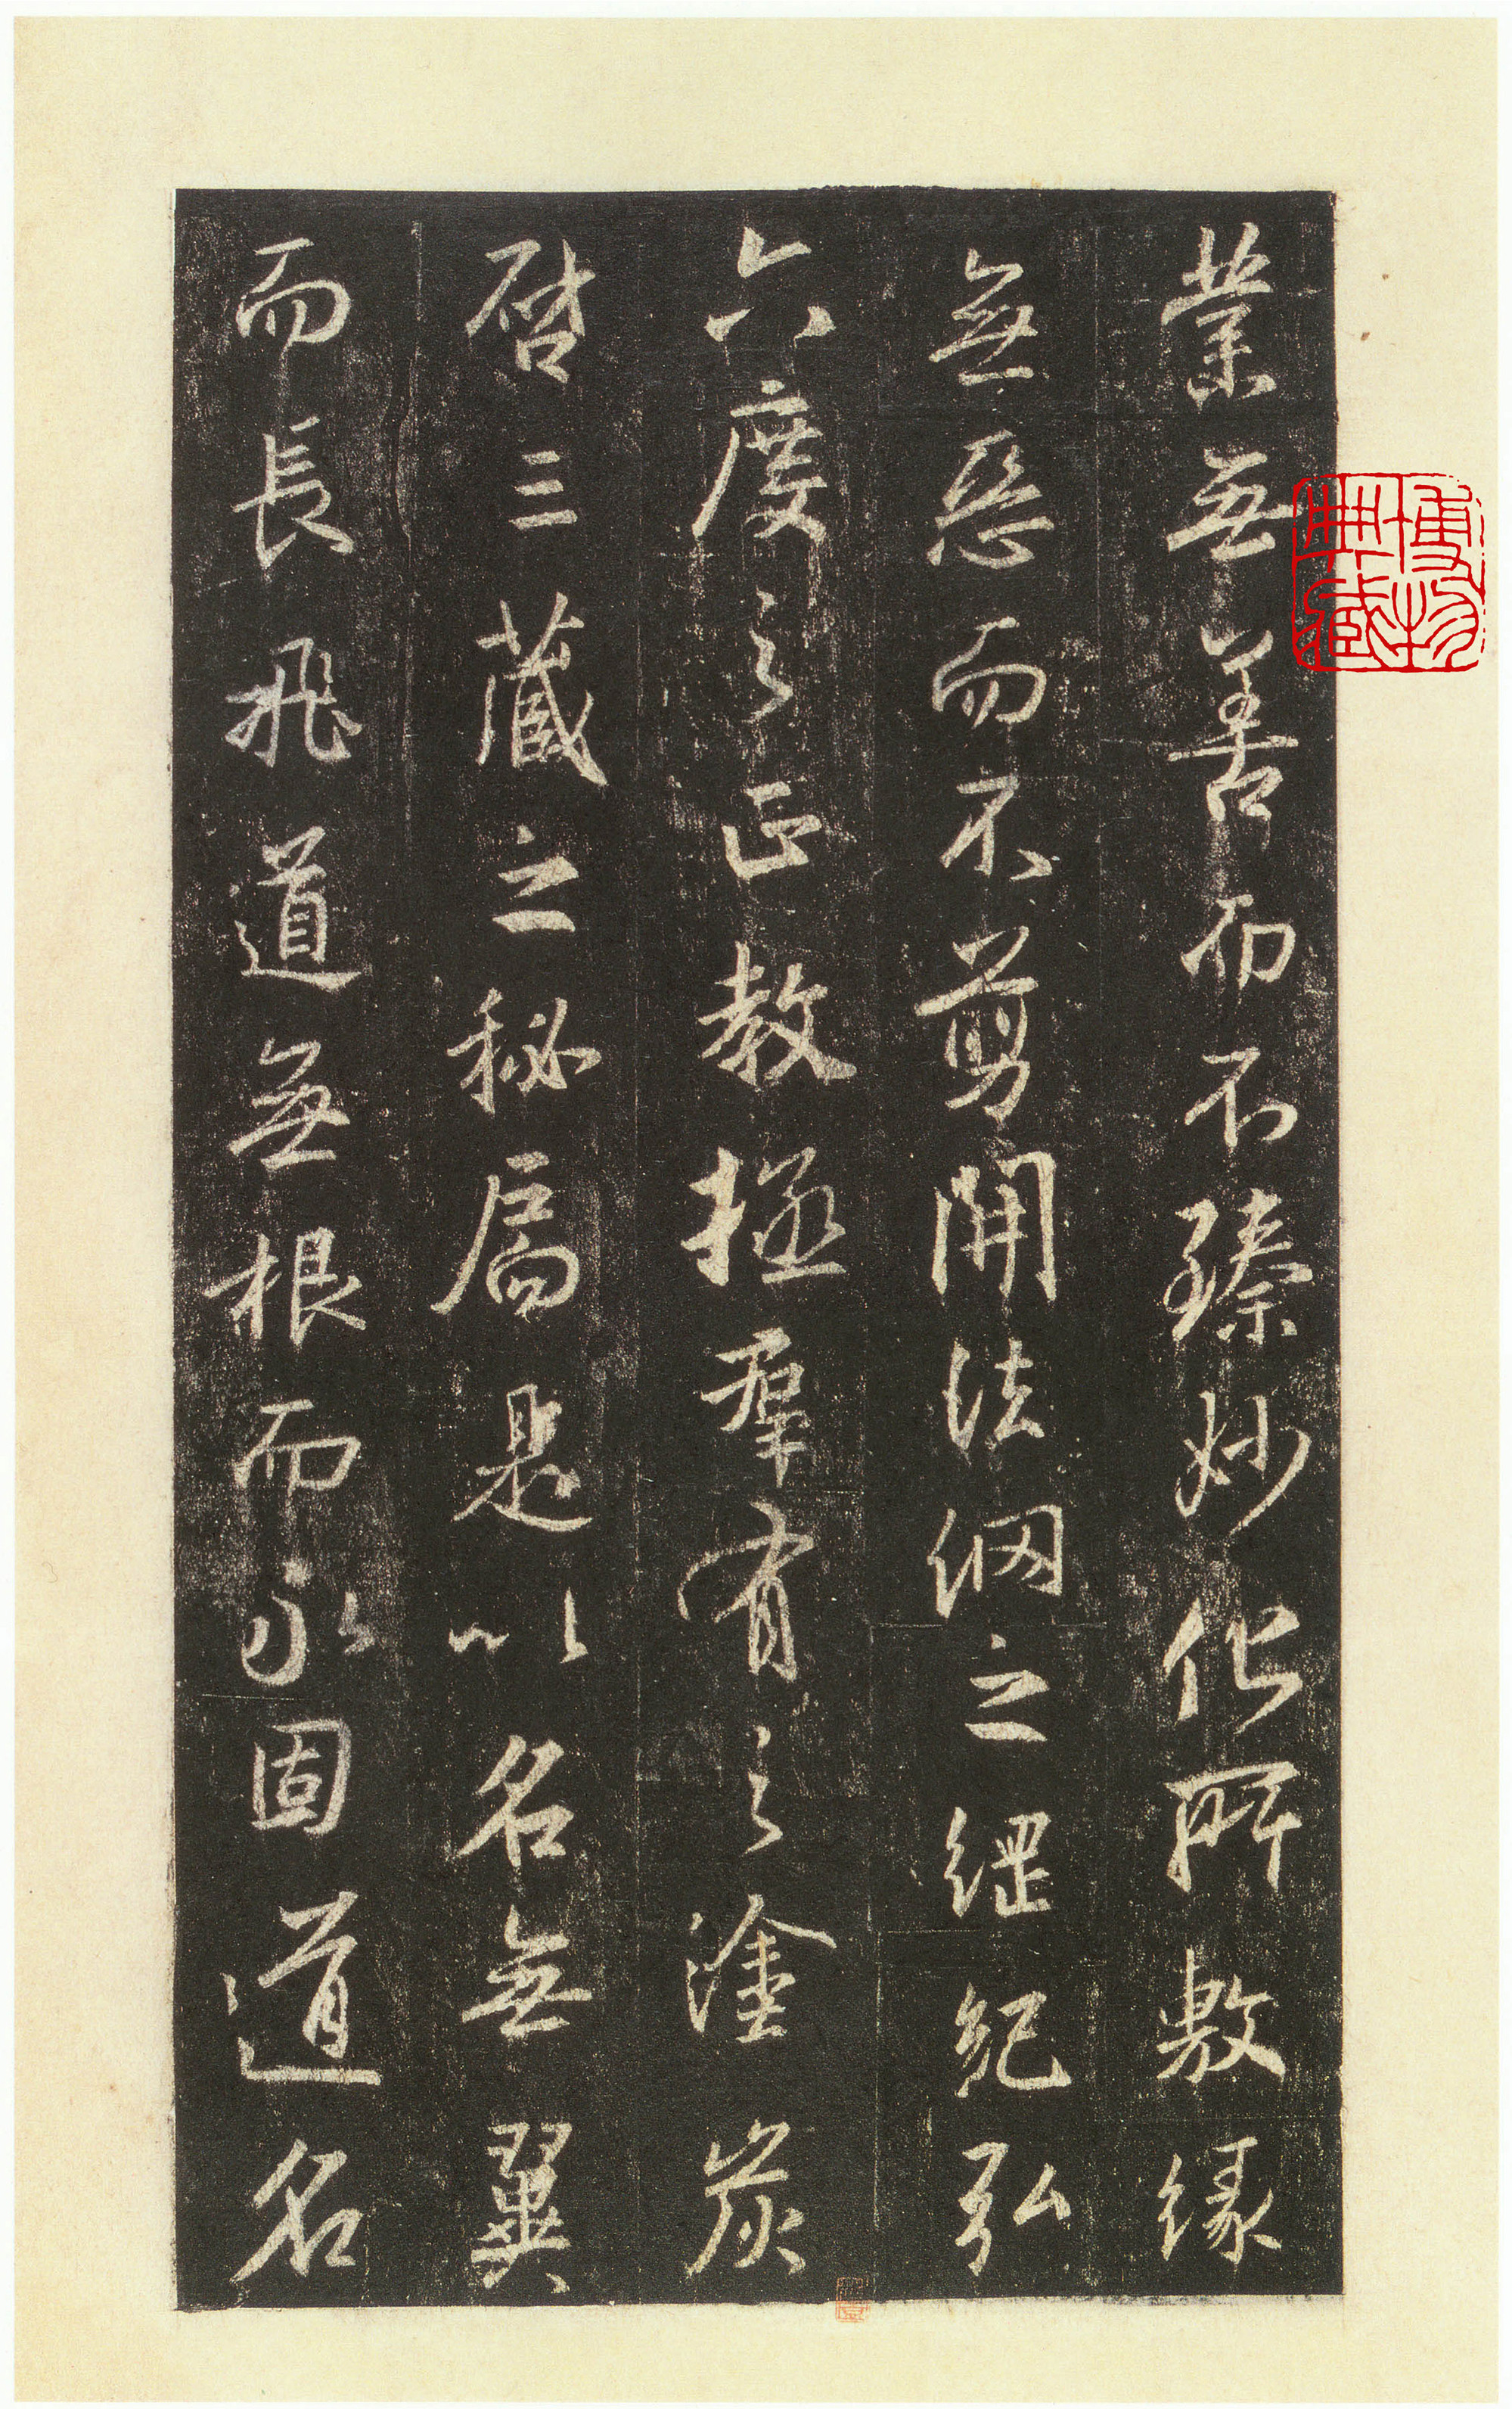 業無善而不臻妙化所敷緣
無惡而不剪開法網之綱紀弘
六度之正教拯羣有之塗炭
啓三藏之秘扃是以名無翼
而長飛道無根而永固道名
博物典藏